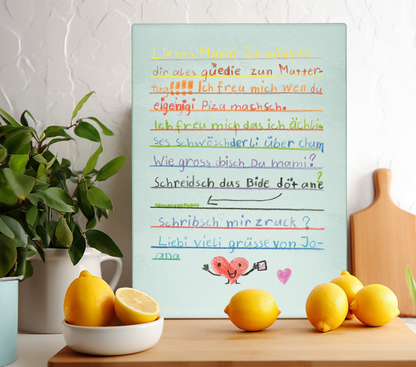 Liebes Mami ich wünsche
dir ales guedie zun Mutter-
tag!!!! Ich freu mich wen du
eigenigi Piza machsch.
Ich freu mich das ich ächli
ses schwöschderli über chum
Wie gross bisch Du mami?
Schreidsch das Bide dötane?
Schribsch mir zruck?
Liebi vieli grüsse von Jo-
ana